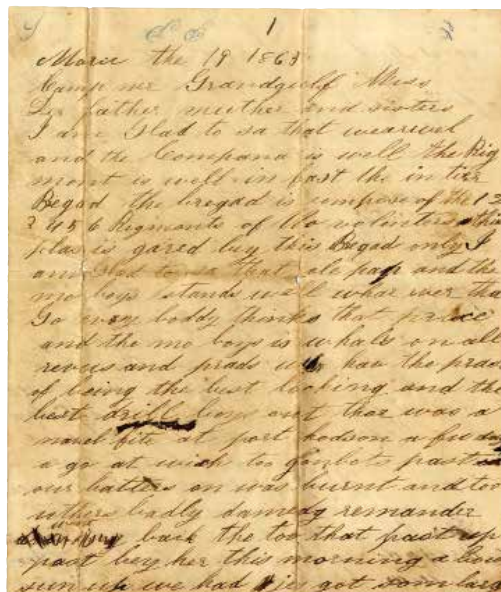 1
March the 19 1863
Camp ner Grandgiolf Miss
Dr father mother and sisters
I am Glad to sa that wearwel
and the Compana is well the Rig
ment is well in fact the intier
Begad the bregad is compose of the 1 2
3 4 5 6 Rigments of Mo volinters tha
plas is gared buy this Begad only I
am Glad to sa that ole pap and the
mo boys stands well whar ever tha
Go every boddy thinks that price
and the mo boys is whals on all
revus and prads we hav the prase
of being the best looking and the
best drill boys out thar was a
navel fite at port hodson a few days
a go at wich too gonbots past
our batters on was burnt and too
uthers badly damedg remander
back the too that past up
past buy her this morning a bout
sun up we had jes got som larg